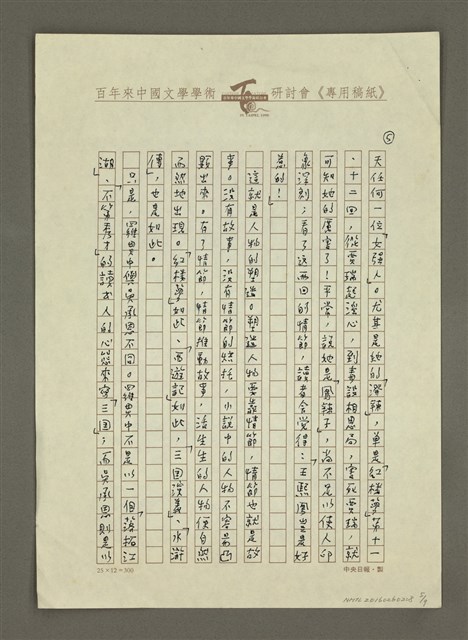 百年來中國文學學術研討會《專用稿紙》
⑤
天任何一位女強人。尤其是她的潑辣,單是紅樓夢第十一
、十二回,從賈瑞起淫心,到毒設相思局,害死賈瑞,就
可知她的厲害了!平常,說她是「鳳辣子」,尚不足以使人印
象深刻;看了這兩回的情節,讀者會覺得:「王熙鳳豈是好
惹的!」
這就是人物的塑造。塑造人物要靠情節,情節也就是故
事。沒有故事,沒有情節的烘托,小說中的人物不容易凸
顯出來。有了情節,情節推動故事,活生生的人物便自然
而然地出現。「紅樓夢」如此、「西遊記」如此,「三國演義」、「水滸
傳」,也是如此。
只是,羅貫中與吳承恩不同。羅貫中不是以一個「落拓江
湖」、「不第秀才」的讀書人的心態來寫「三國」;而吳承恩則是以
25×12=300
中央日報・製
5/9